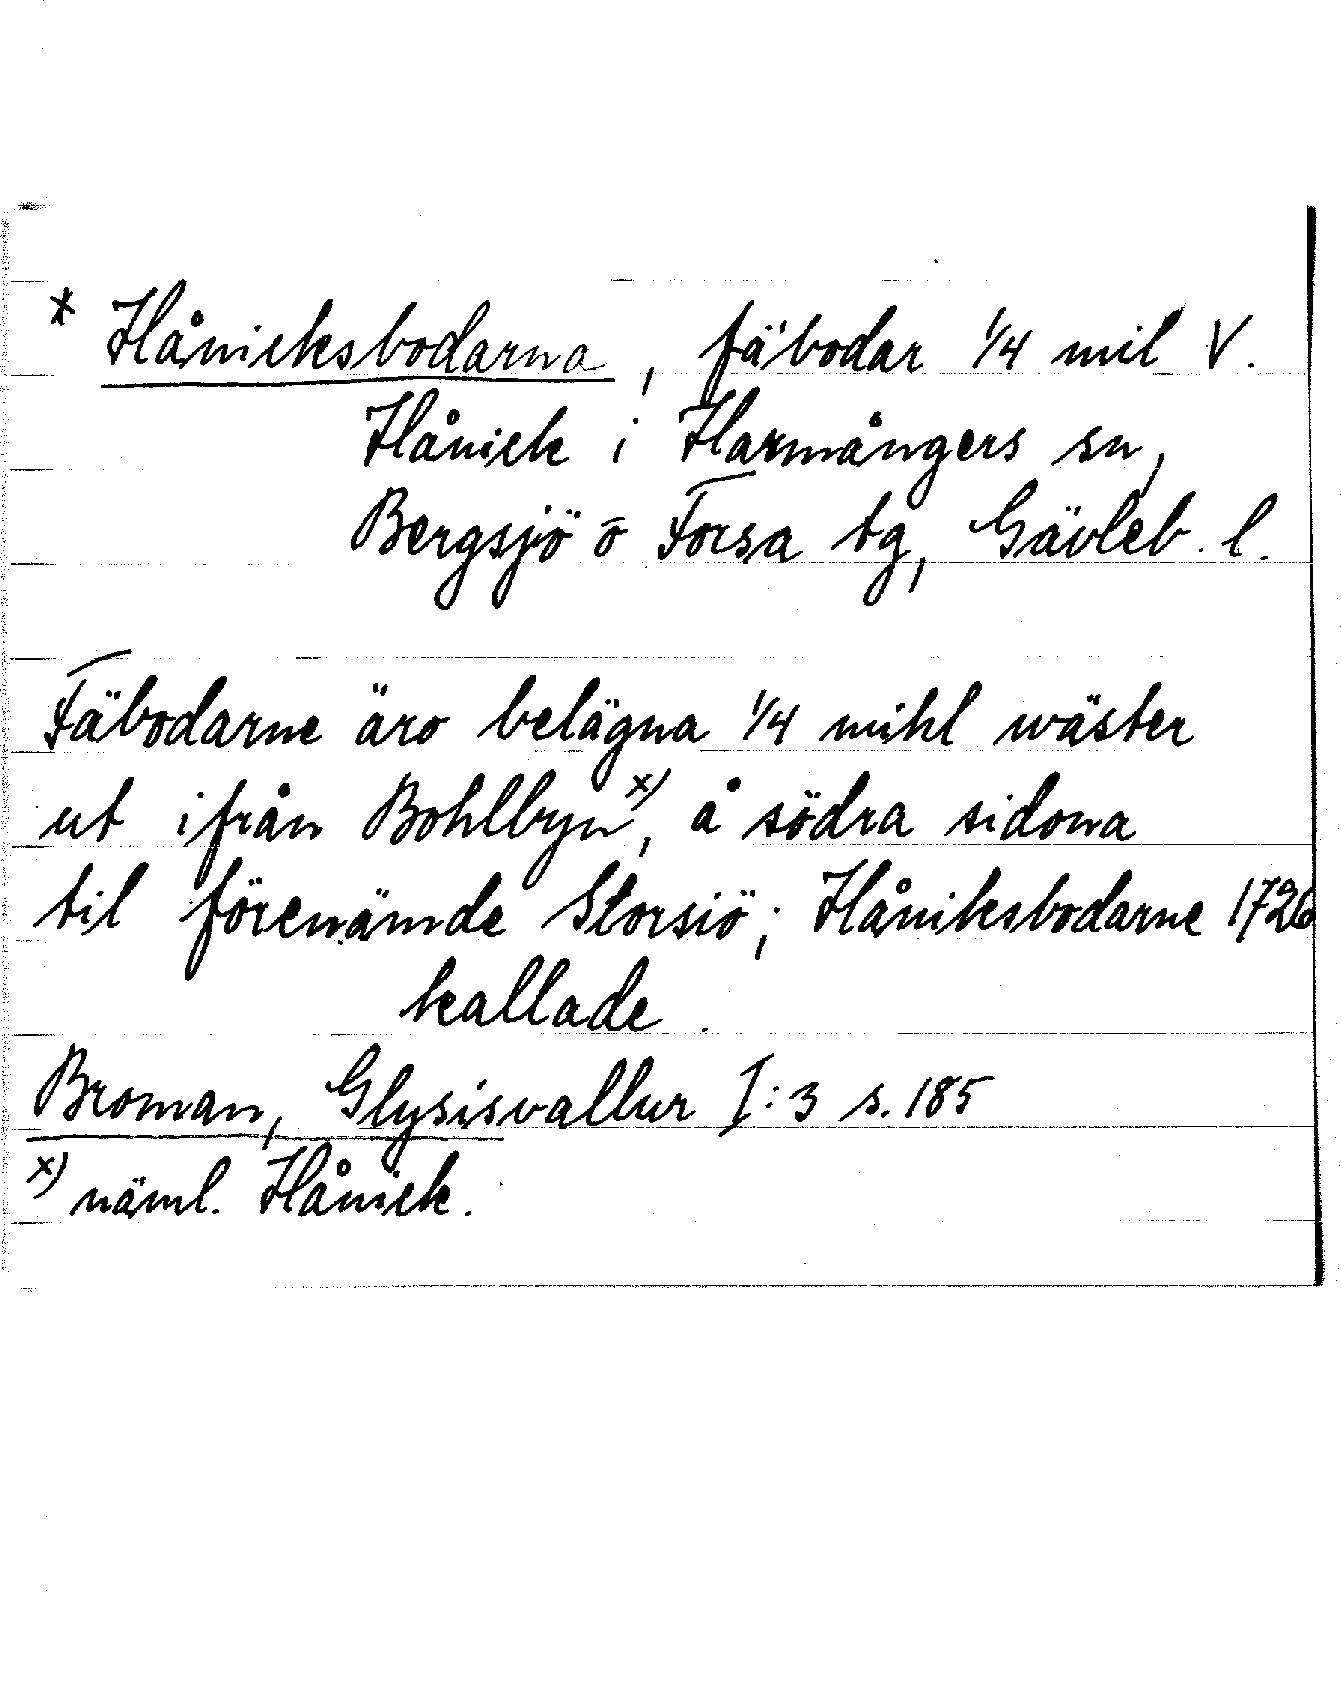 x Hånicksbodarna, fäbodar 1/4 mil V.
Hånick i Harmångers sn,
Bergsjö o Forsa tg, Gävleb. l.
Fäbodarne äro belägna 1/4 mihl wäster
ut ifrån Bohlbyn x), å södra sidona
til förenämde Storsiö; Håniksbodarne 1726
kallade.
Broman, Glysisvallur I:3 s. 185
x) näml. Hånick.